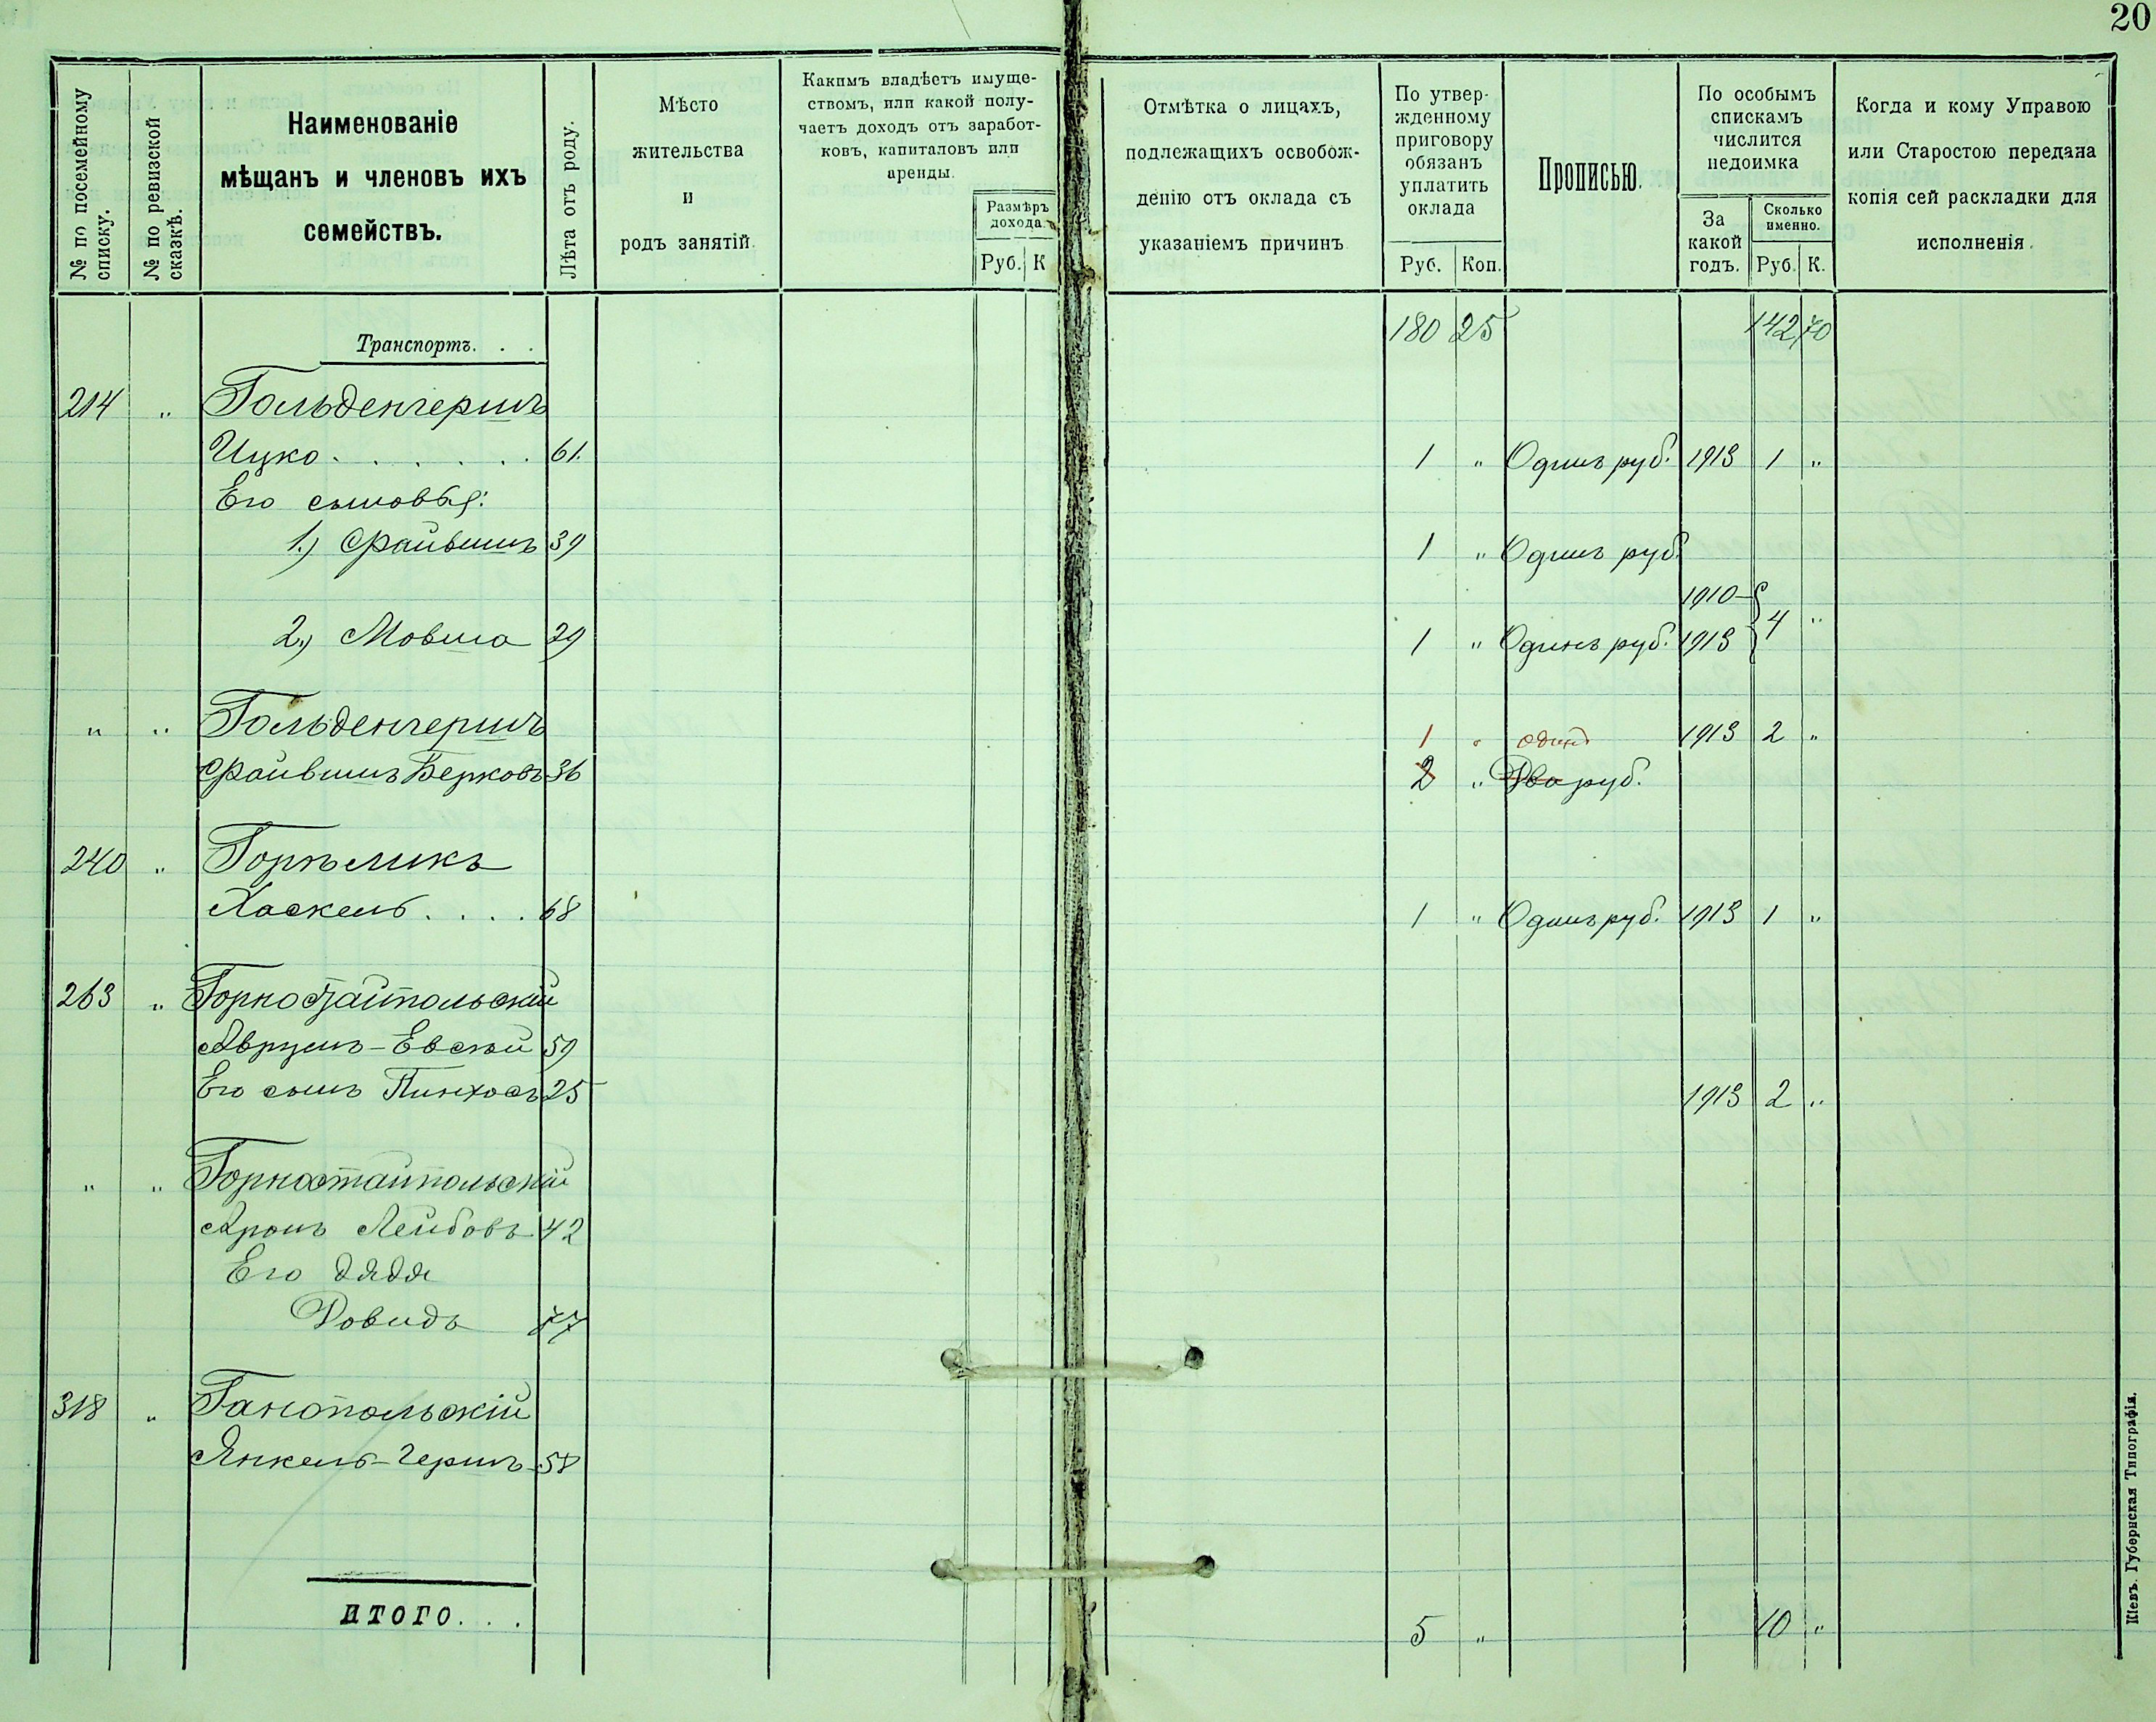 20
№ по посемейному списку.
№ по ревизской сказкѣ.
Наименованіе
мѣщанъ и членовъ ихъ
семействъ.
Лѣта отъ роду.
Мѣсто
жительства
и
родъ занятій.
Какимъ владѣетъ имуще-
ствомъ, или какой полу-
чаетъ доходъ отъ заработ-
ковъ, капиталовъ или
аренды.
Размѣръ
дохода.
Руб. К
Отмѣтка о лицахъ,
подлежащихъ освобож-
денію отъ оклада съ
указаніемъ причинъ
По утвер-
жденному
приговору
обязанъ
уплатить
оклада
Руб. Коп.
Прописью.
По особымъ
спискамъ
числится
недоимка
За
какой
годъ.
Сколько
именно.
Руб. К.
Когда и кому Управою
или Старостою передана
копія сей раскладки для
исполненія.
Транспортъ. . . 180 25 142 70
214 " Гольденгершъ
Ицко . . . . . . 61. 1 " Одинъ руб. 1913 1 "
Его сыновья:
1.) Файвишъ 39 1 " Одинъ руб.
1910-
2.) Мовша 29 1 " Одинъ руб. 1913 4 "
" " Гольденгершъ 1 " один 1913 2 "
Файвишъ Берковъ 36 2 " Два руб.
240 " Горѣликъ
Хаскель . . . . 68 1 " Одинъ руб. 1913 1 "
263 " Горностайпольскій
Аврумъ-Евсѣй 59
Его сынъ Пинхосъ 25 1913 2 "
" " Горностайпольскій
Аронъ Лейбовъ 42
Его дядя
Довидъ 57
318 " Ганопольскій
Янкель-Гершъ 58
ИТОГО. . . 5 " 10 "
Кіевъ. Губернская Типографія.